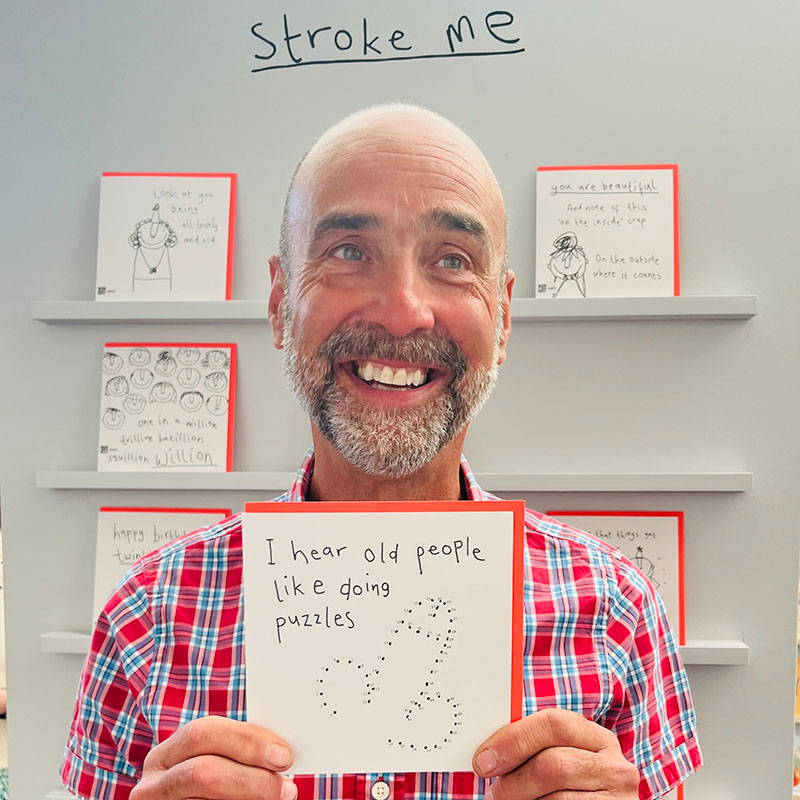 stroke me
Look at you
being
all lovely
and old
you are beautiful
And none of this
'on the inside' crap
On the outside
where it counts
one in a million
trillion bazillion
squillion willion
happy birth
twin
that things get
I hear old people
like doing
puzzles